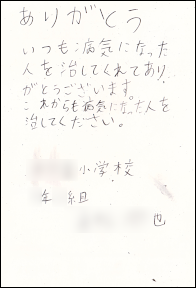 ありがとう
いつも病気になった
人を治してくれてあり
がとうございます。
これからも病気になった人を
治してください。
小学校
年 組